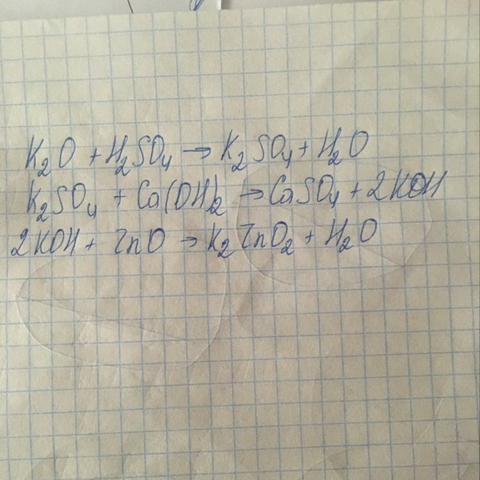 K₂O + H₂SO₄ → K₂SO₄ + H₂O
K₂SO₄ + Ca(OH)₂ → CaSO₄ + 2KOH
2KOH + ZnO → K₂ZnO₂ + H₂O